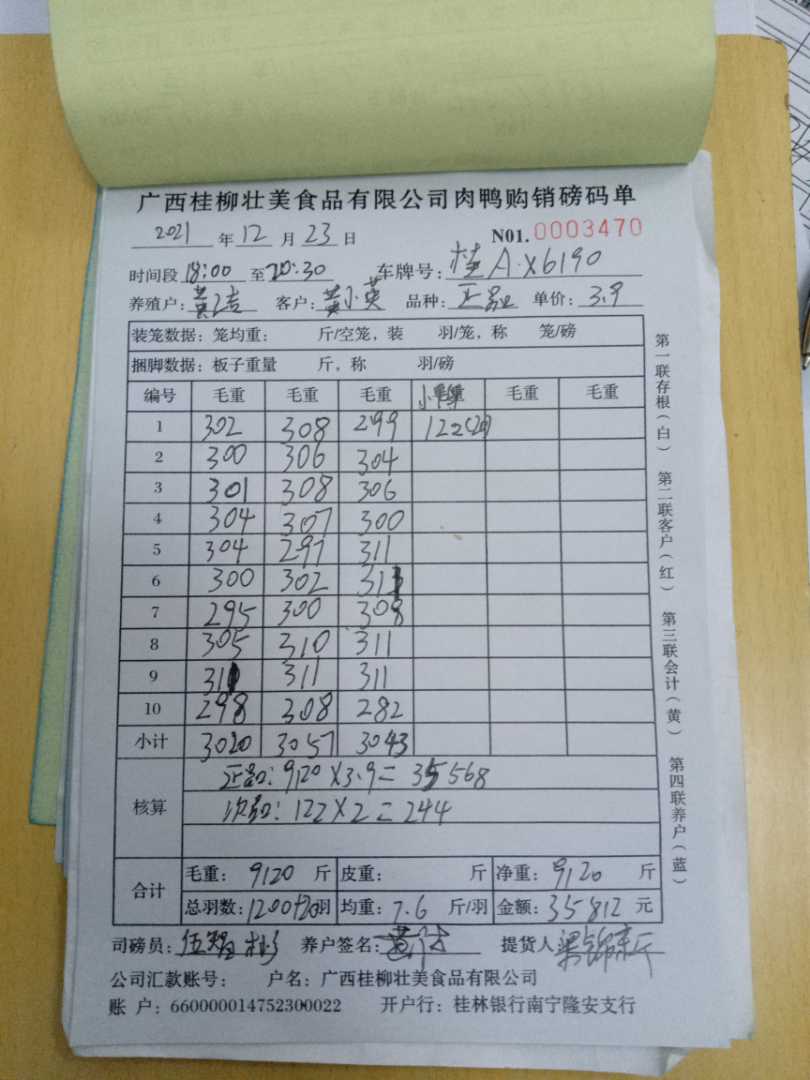 广西桂柳壮美食品有限公司肉鸭购销磅码单
2021 年 12 月 23 日 N01. 0003470
时间段 18:00 至 20:30 车牌号: 桂A·X6190
养殖户: 黄 客户: 黄小英 品种: 正品 单价: 3.9
装笼数据: 笼均重: 斤/空笼, 装 羽/笼, 称 笼/磅
捆脚数据: 板子重量 斤, 称 羽/磅
编号 毛重 毛重 毛重 毛重 毛重 毛重
1 302 308 299 122(20)
2 300 306 304
3 301 308 306
4 304 307 300
5 304 297 311
6 300 302 311
7 295 300 308
8 305 310 311
9 311 311 311
10 298 308 282
小计 3020 3057 3043
核算 正品: 9120×3.9=35568
次品: 122×2=244
合计 毛重: 9120 斤 皮重: 斤 净重: 9120 斤
总羽数: 1200+20羽 均重: 7.6 斤/羽 金额: 35812 元
司磅员: 伍 彬 养户签名: 黄 提货人 梁锦
公司汇款账号: 户名: 广西桂柳壮美食品有限公司
账 户: 660000014752300022 开户行: 桂林银行南宁隆安支行
第一联存根(白) 第二联客户(红) 第三联会计(黄) 第四联养户(蓝)